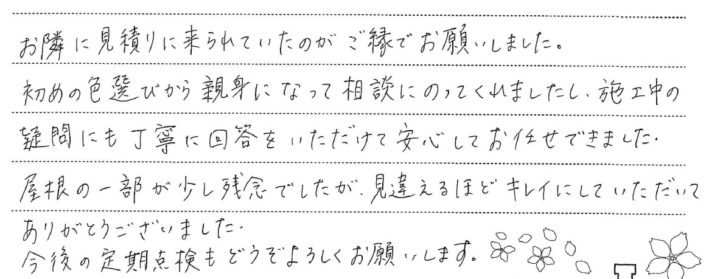 お隣に見積りに来られていたのがご縁でお願いしました。
初めの色選びから親身になって相談にのってくれましたし、施工中の
疑問にも丁寧に回答をいただけて安心してお任せできました。
屋根の一部が少し残念でしたが、見違えるほどキレイにしていただいて
ありがとうございました。
今後の定期点検もどうぞよろしくお願いします。